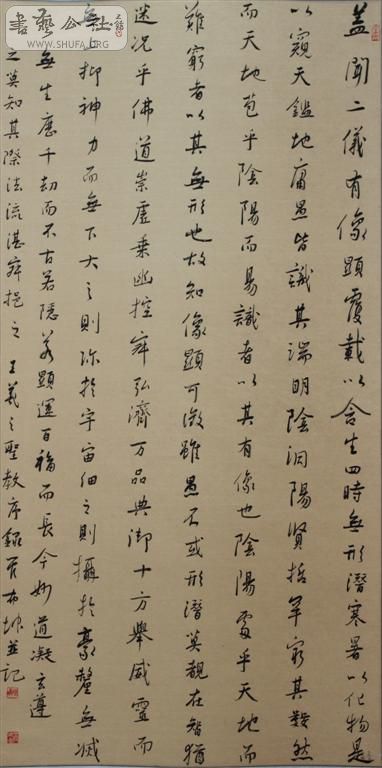 書藝公社
WWW.SHUFA.ORG
蓋聞二儀有像顯覆載以含生四時無形潛寒暑以化物是
以窺天鑑地庸愚皆識其端明陰洞陽賢哲罕窮其數然
而天地苞乎陰陽而易識者以其有像也陰陽處乎天地而
難窮者以其無形也故知像顯可徵雖愚不或形潛莫覩在智猶
迷况乎佛道崇虛乘幽控寂弘濟万品典御十方舉威靈而
無上抑神力而無下大之則弥於宇宙細之則攝於豪釐無滅
無生歷千劫而不古若隱若顯運百福而長今妙道凝玄遵
之莫知其際法流湛寂挹之 王羲之聖教序 並記